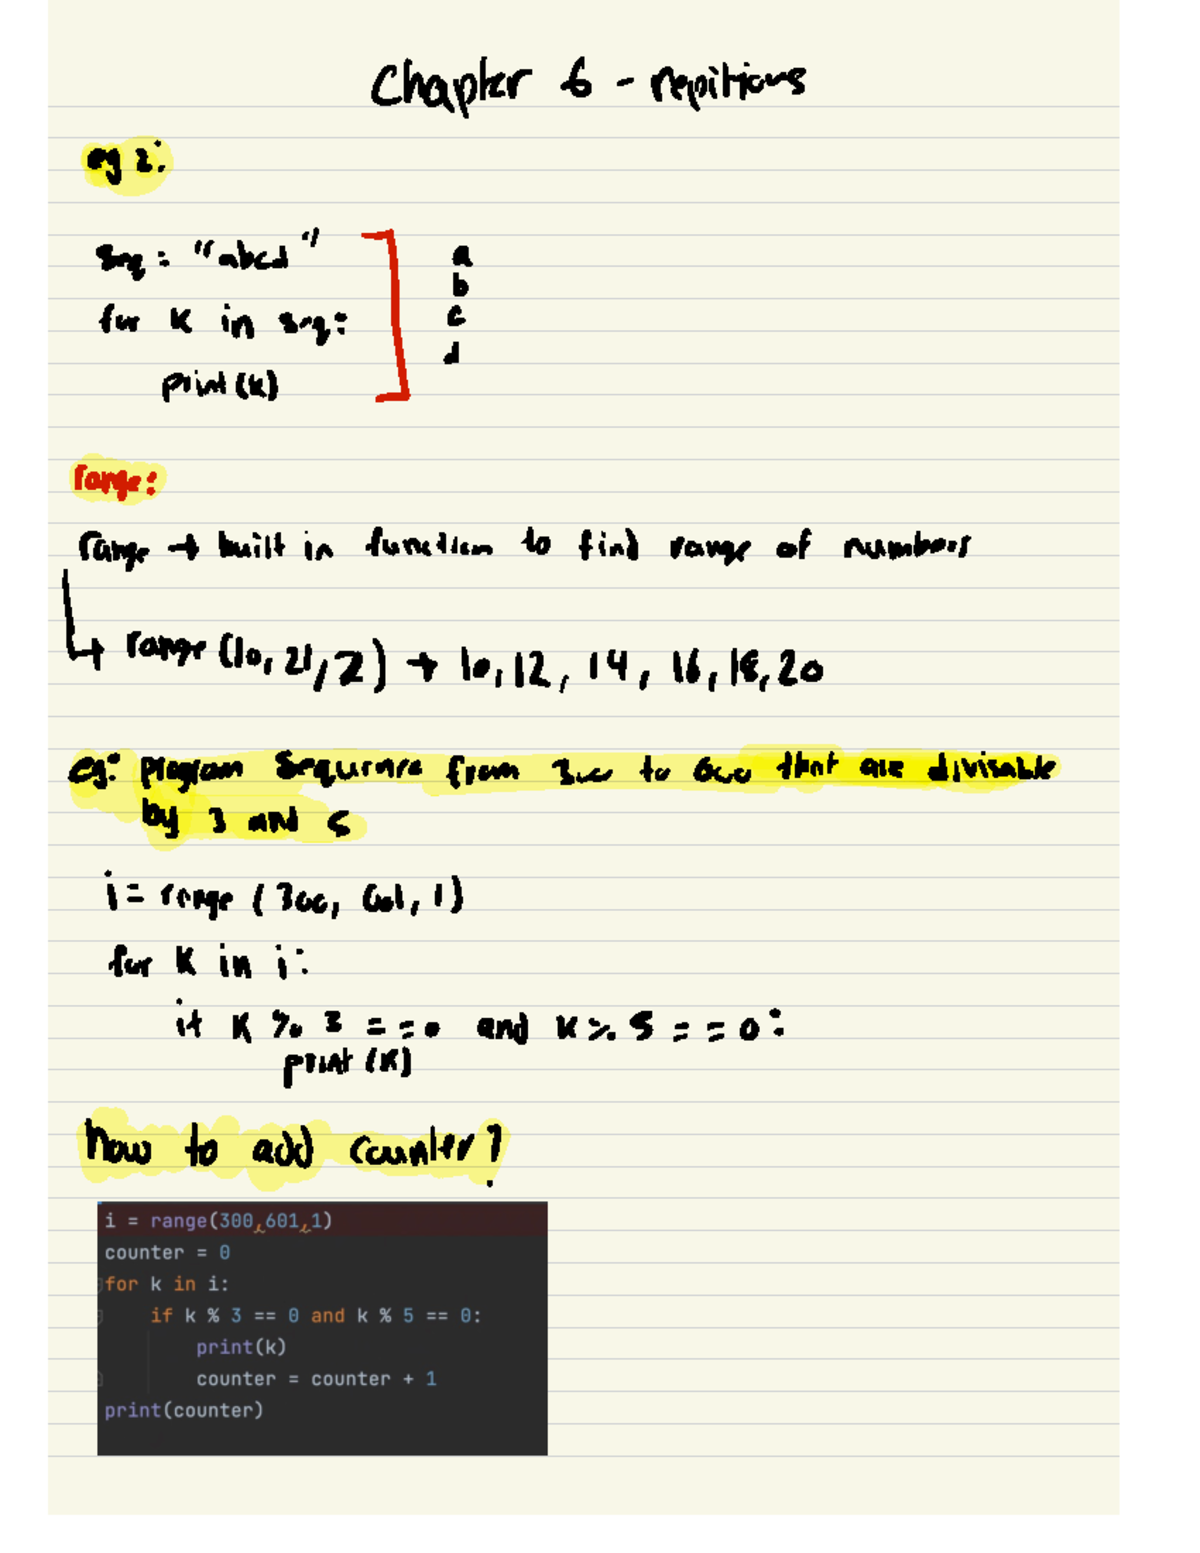 Chapter 6 - repitions
eg 2:
seq = "abcd"
for k in seq:
print(k)
a
b
c
d
range:
range → built in function to find range of numbers
↳ range (10, 21, 2) → 10, 12, 14, 16, 18, 20
eg: program sequence from 300 to 600 that are divisable
by 3 and 5
i = range (300, 601, 1)
for k in i:
if k % 3 == 0 and k % 5 == 0:
print (k)
how to add counter?
i = range(300,601,1)
counter = 0
for k in i:
if k % 3 == 0 and k % 5 == 0:
print(k)
counter = counter + 1
print(counter)